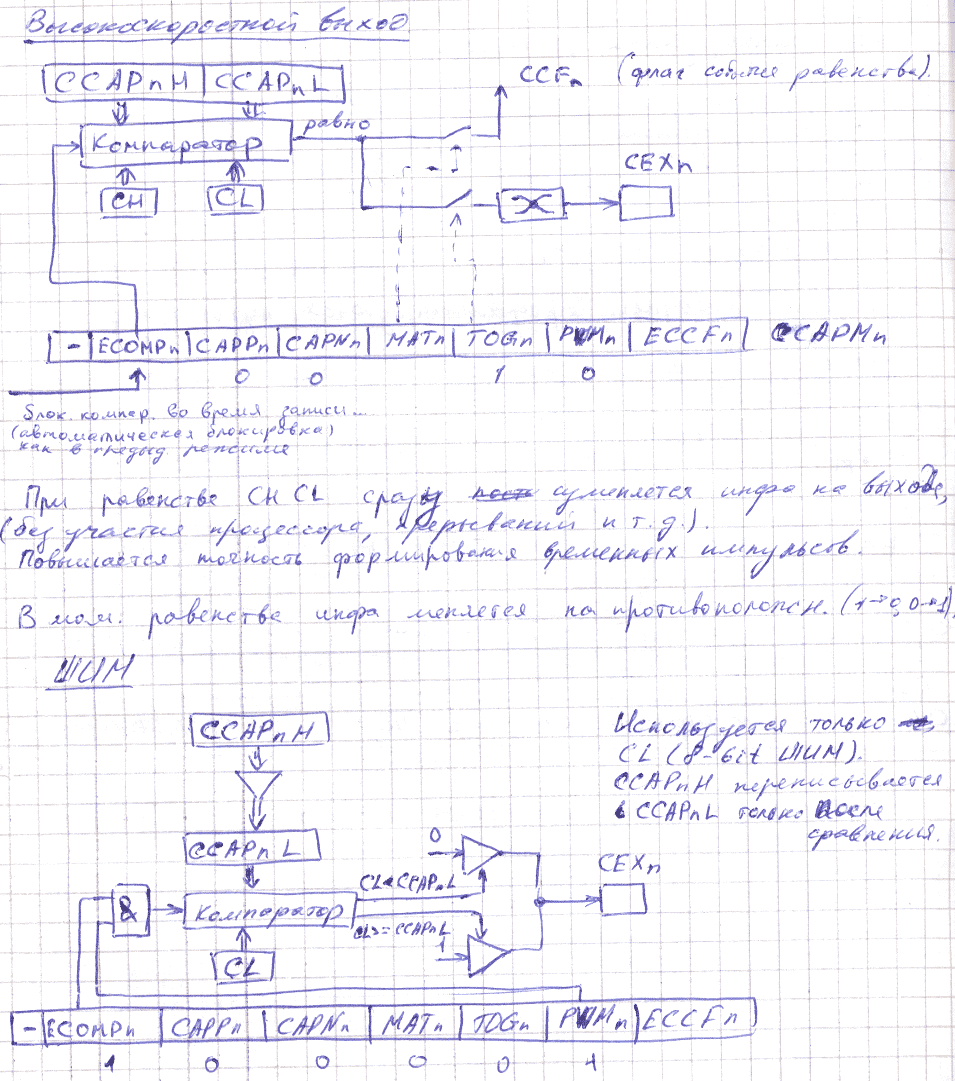 Высокоскоростной выход
CCAPnH CCAPnL
CCFn (флаг события равенства).
равно
Компаратор
CEXn
CH CL
- ECOMPn CAPPn CAPNn MATn TOGn PWMn ECCFn CCAPMn
0 0 1 0
Блок. компер. во время записи...
(автоматическая блокировка)
как в предыд режиме
При равенстве CH CL сразу изменяется инфа на выходе,
(без участия процессора, прерываний и т.д.).
Повышается точность формирования временных импульсов.
В мом. равенства инфа меняется на противоположн. (1→0, 0→1).
ШИМ
CCAPnH
Используется только
CL (8-bit ШИМ).
CCAPnH переписывается
в CCAPnL только после
сравнения.
CCAPnL
0
CL<CCAPnL
CEXn
&
Компаратор
CL>=CCAPnL
1
CL
- ECOMPn CAPPn CAPNn MATn TOGn PWMn ECCFn
1 0 0 0 0 1